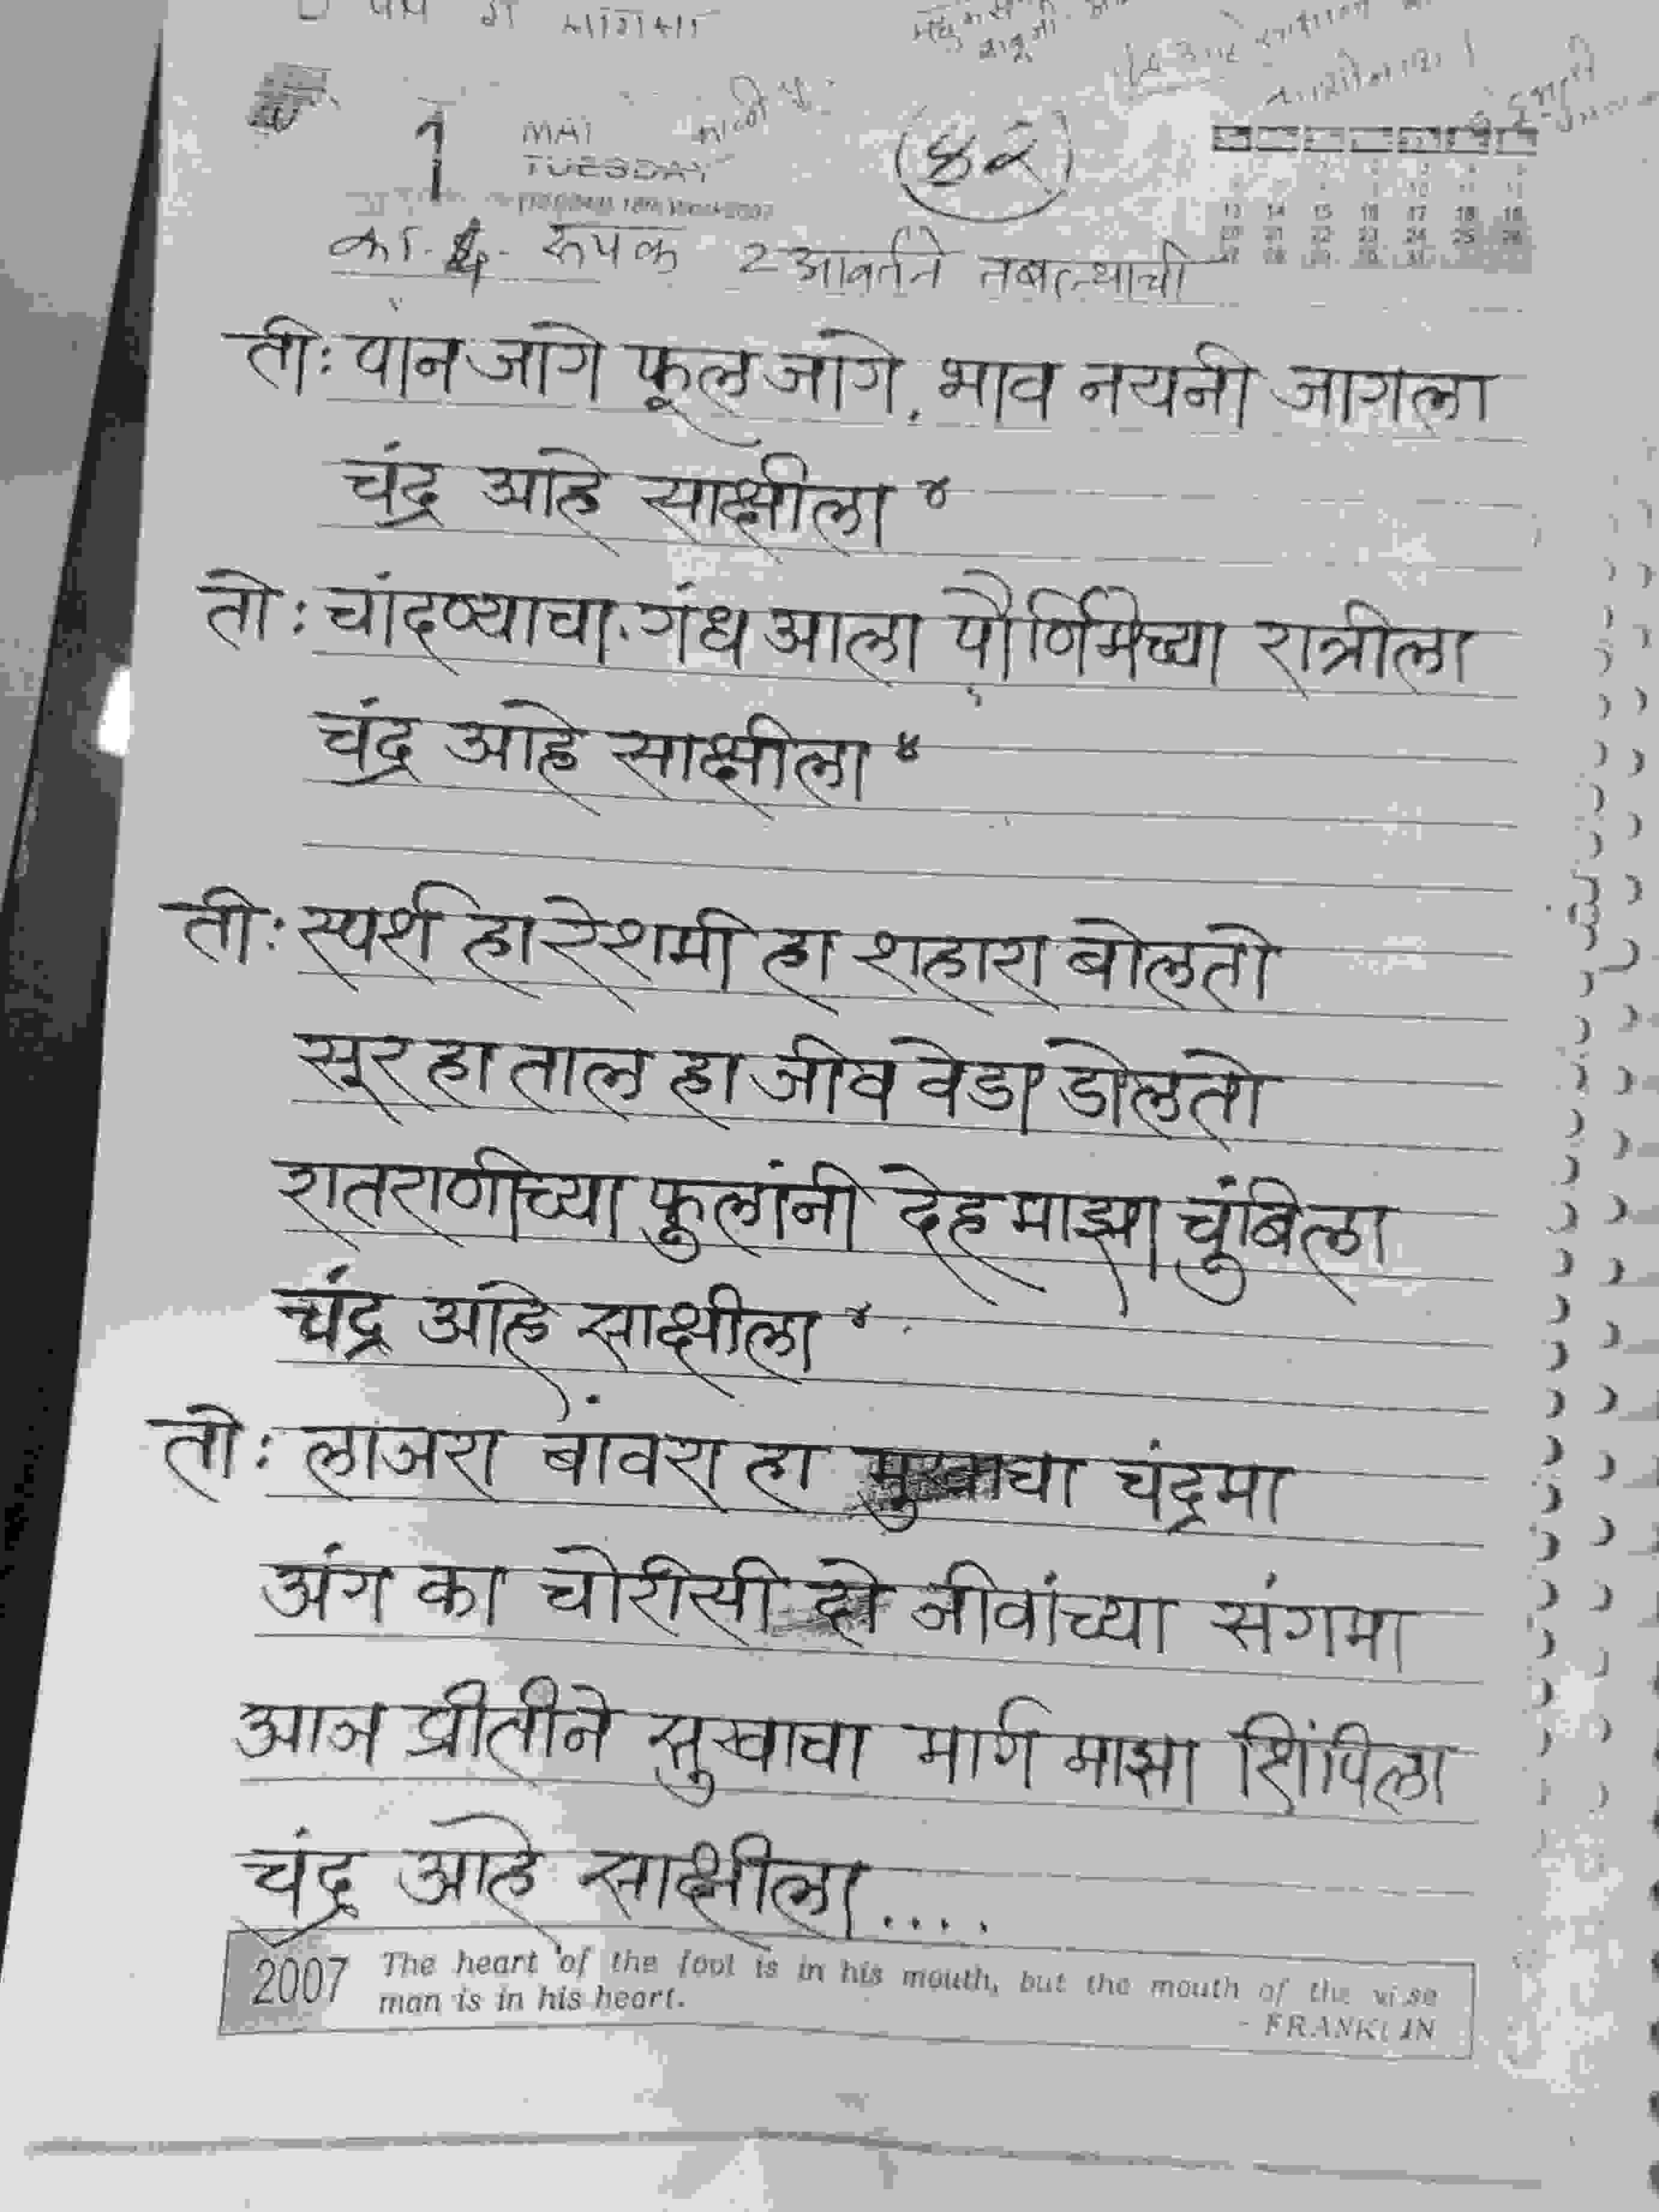 1 MAI
TUESDAY
रूपक 2 आवर्तने तबल्याची
ती: पान जागे फूल जागे, भाव नयनी जागला
चंद्र आहे साक्षीला ४
तो: चांदण्याचा गंध आला पौर्णिमेच्या रात्रीला
चंद्र आहे साक्षीला ४
ती: स्पर्श हा रेशमी हा शहारा बोलतो
सूर हा ताल हा जीव वेडा डोलतो
रातराणीच्या फुलांनी देह माझा चुंबिला
चंद्र आहे साक्षीला ४
तो: लाजरा बांवरा हा मुखाचा चंद्रमा
अंग का चोरीसी दो जीवांच्या संगमा
आज प्रीतीने सुखाचा मार्ग माझा शिंपिला
चंद्र आहे साक्षीला....
2007 The heart of the fool is in his mouth, but the mouth of the wise
man is in his heart.
- FRANKLIN